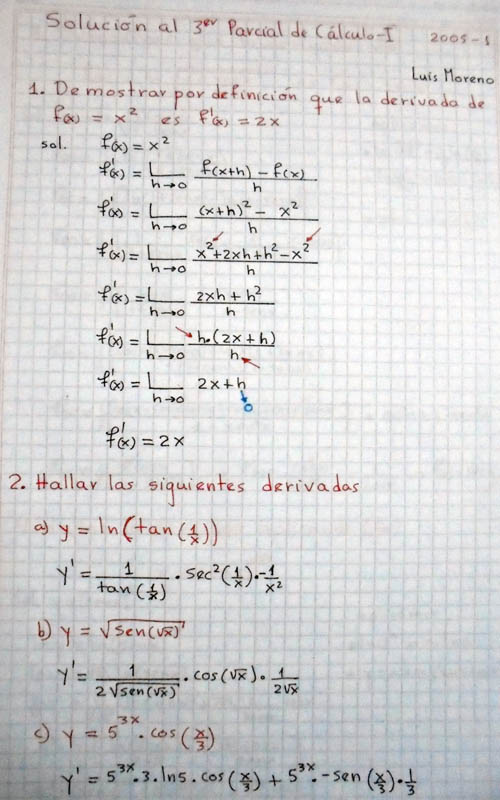 Solución al 3er Parcial de Cálculo-I 2005-1
Luis Moreno
1. Demostrar por definición que la derivada de
f(x) = x² es f'(x) = 2x
sol. f(x) = x²
f'(x) = L h→0 f(x+h) - f(x) / h
f'(x) = L h→0 (x+h)² - x² / h
f'(x) = L h→0 x²+2xh+h²-x² / h
f'(x) = L h→0 2xh + h² / h
f'(x) = L h→0 h.(2x+h) / h
f'(x) = L h→0 2x+h
0
f'(x) = 2x
2. Hallar las siguientes derivadas
a) y = ln(tan(1/x))
y' = 1/tan(1/x) . sec²(1/x) . -1/x²
b) y = √sen(√x)
y' = 1/2√sen(√x) . cos(√x) . 1/2√x
c) y = 5^3x . cos(x/3)
y' = 5^3x . 3 . ln5 . cos(x/3) + 5^3x . -sen(x/3) . 1/3